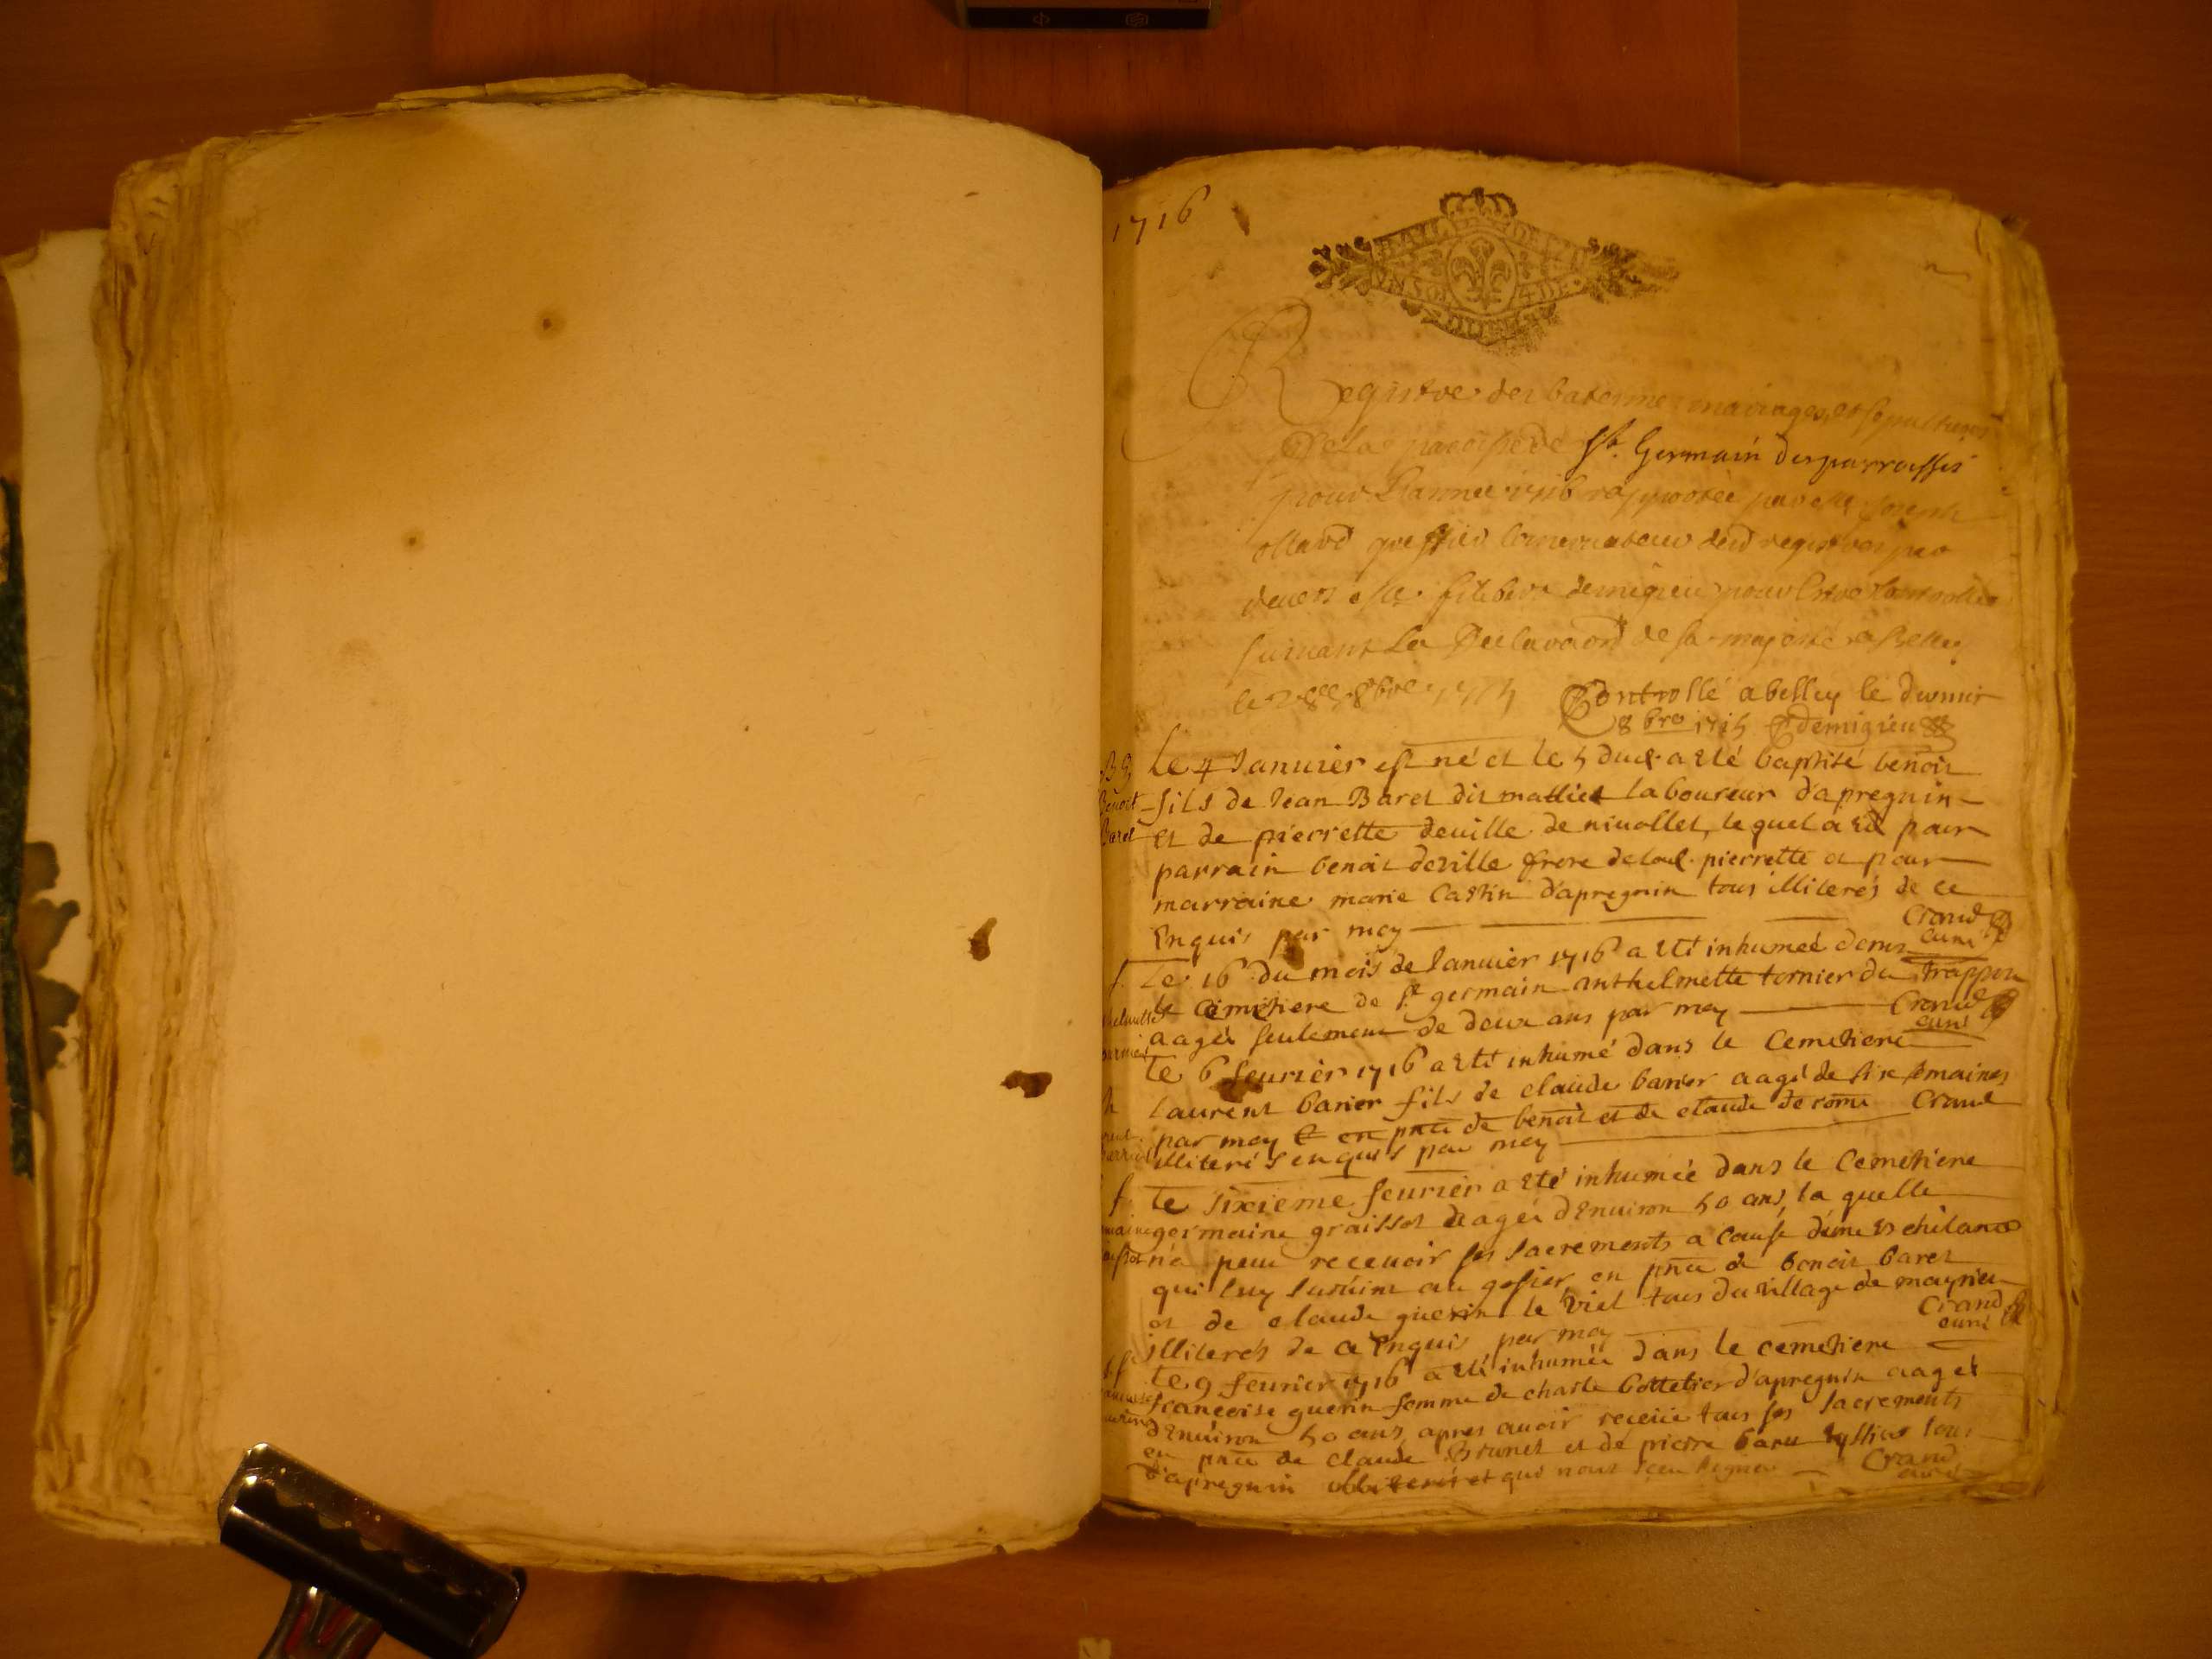 1716
UN SOL 4 DE
Registre des batesmes mariages et sepultures
De la paroisse de St. Germain desparroisses
pour L'année 1716 rapportée par
greffier Conservateur desd registres par
devers demigieu pour Estre
suivant La Declaraon de sa majesté a Belley
le 8bre 1715 Controllé a belley le dernier
8bre 1715 demigieu
B
Benoit
Baret
Le 4 Januier est né et le 5 dud. a eté baptisé benoit
fils de Jean Baret dit mathiet laboureur d'apregnin
et de pierrette deuille de niuollet, lequel a eû pour
parrain benoit deville frere de lad. pierrette et pour
marraine marie Castin d'apregnin tous illiterés de ce
Enquis par moy Crand
curé
Le 16 du mois de Januier 1716 a eté inhumeé dans
le cimetiere de St germain anthelmette tornier du trappon
aageé seulement de deux ans par moy Crand
curé
Le 6 feurier 1716 a eté inhumé dans le Cemetiere
laurent barier fils de claude barier aagé de six semaines
par moy en pnce de benoit et de claude de rome Crand
illiterés enquis par moy
Le sixieme feurier a eté inhumeé dans le Cemetiere
germaine graisset aageé d'Enuiron 50 ans, la quelle
n'a peu receuoir ses sacrements a cause d'une
qui luy suruint au gosier, en pnce de benoit baret
et de claude guerin le viel tous du village de mayrieu
illiterés de ce Enquis par moy Crand
curé
Le 9 feurier 1716 a eté inhumeé dans le cemetiere
francoise guerin femme de charle bottelier d'apregnin aageé
d'Enuiron 50 ans, apres auoir receüe tous ses sacrements
en pnce de claude Brunet et de pierre tous
d'apregnin et qui nont sceu signer Crand
curé